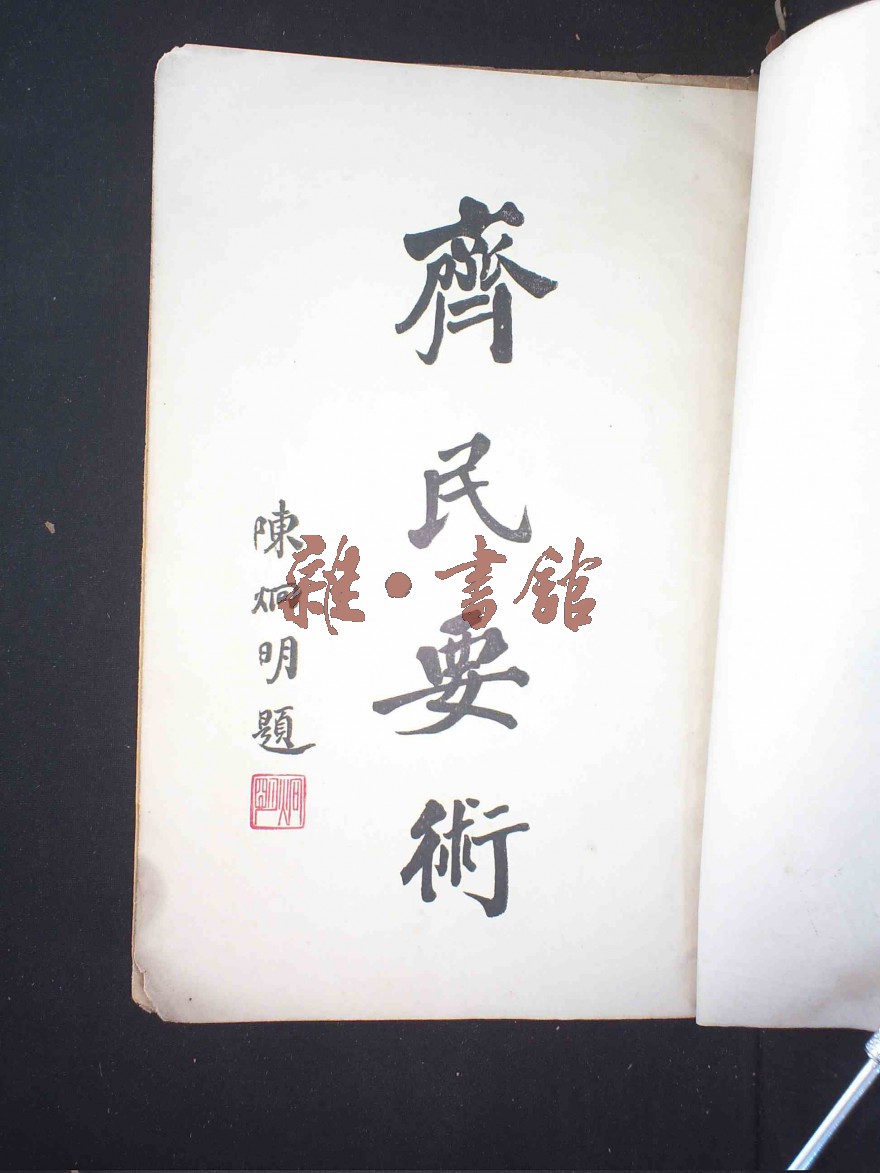 齊民要術
陳炯明題
炯明
雜·書館